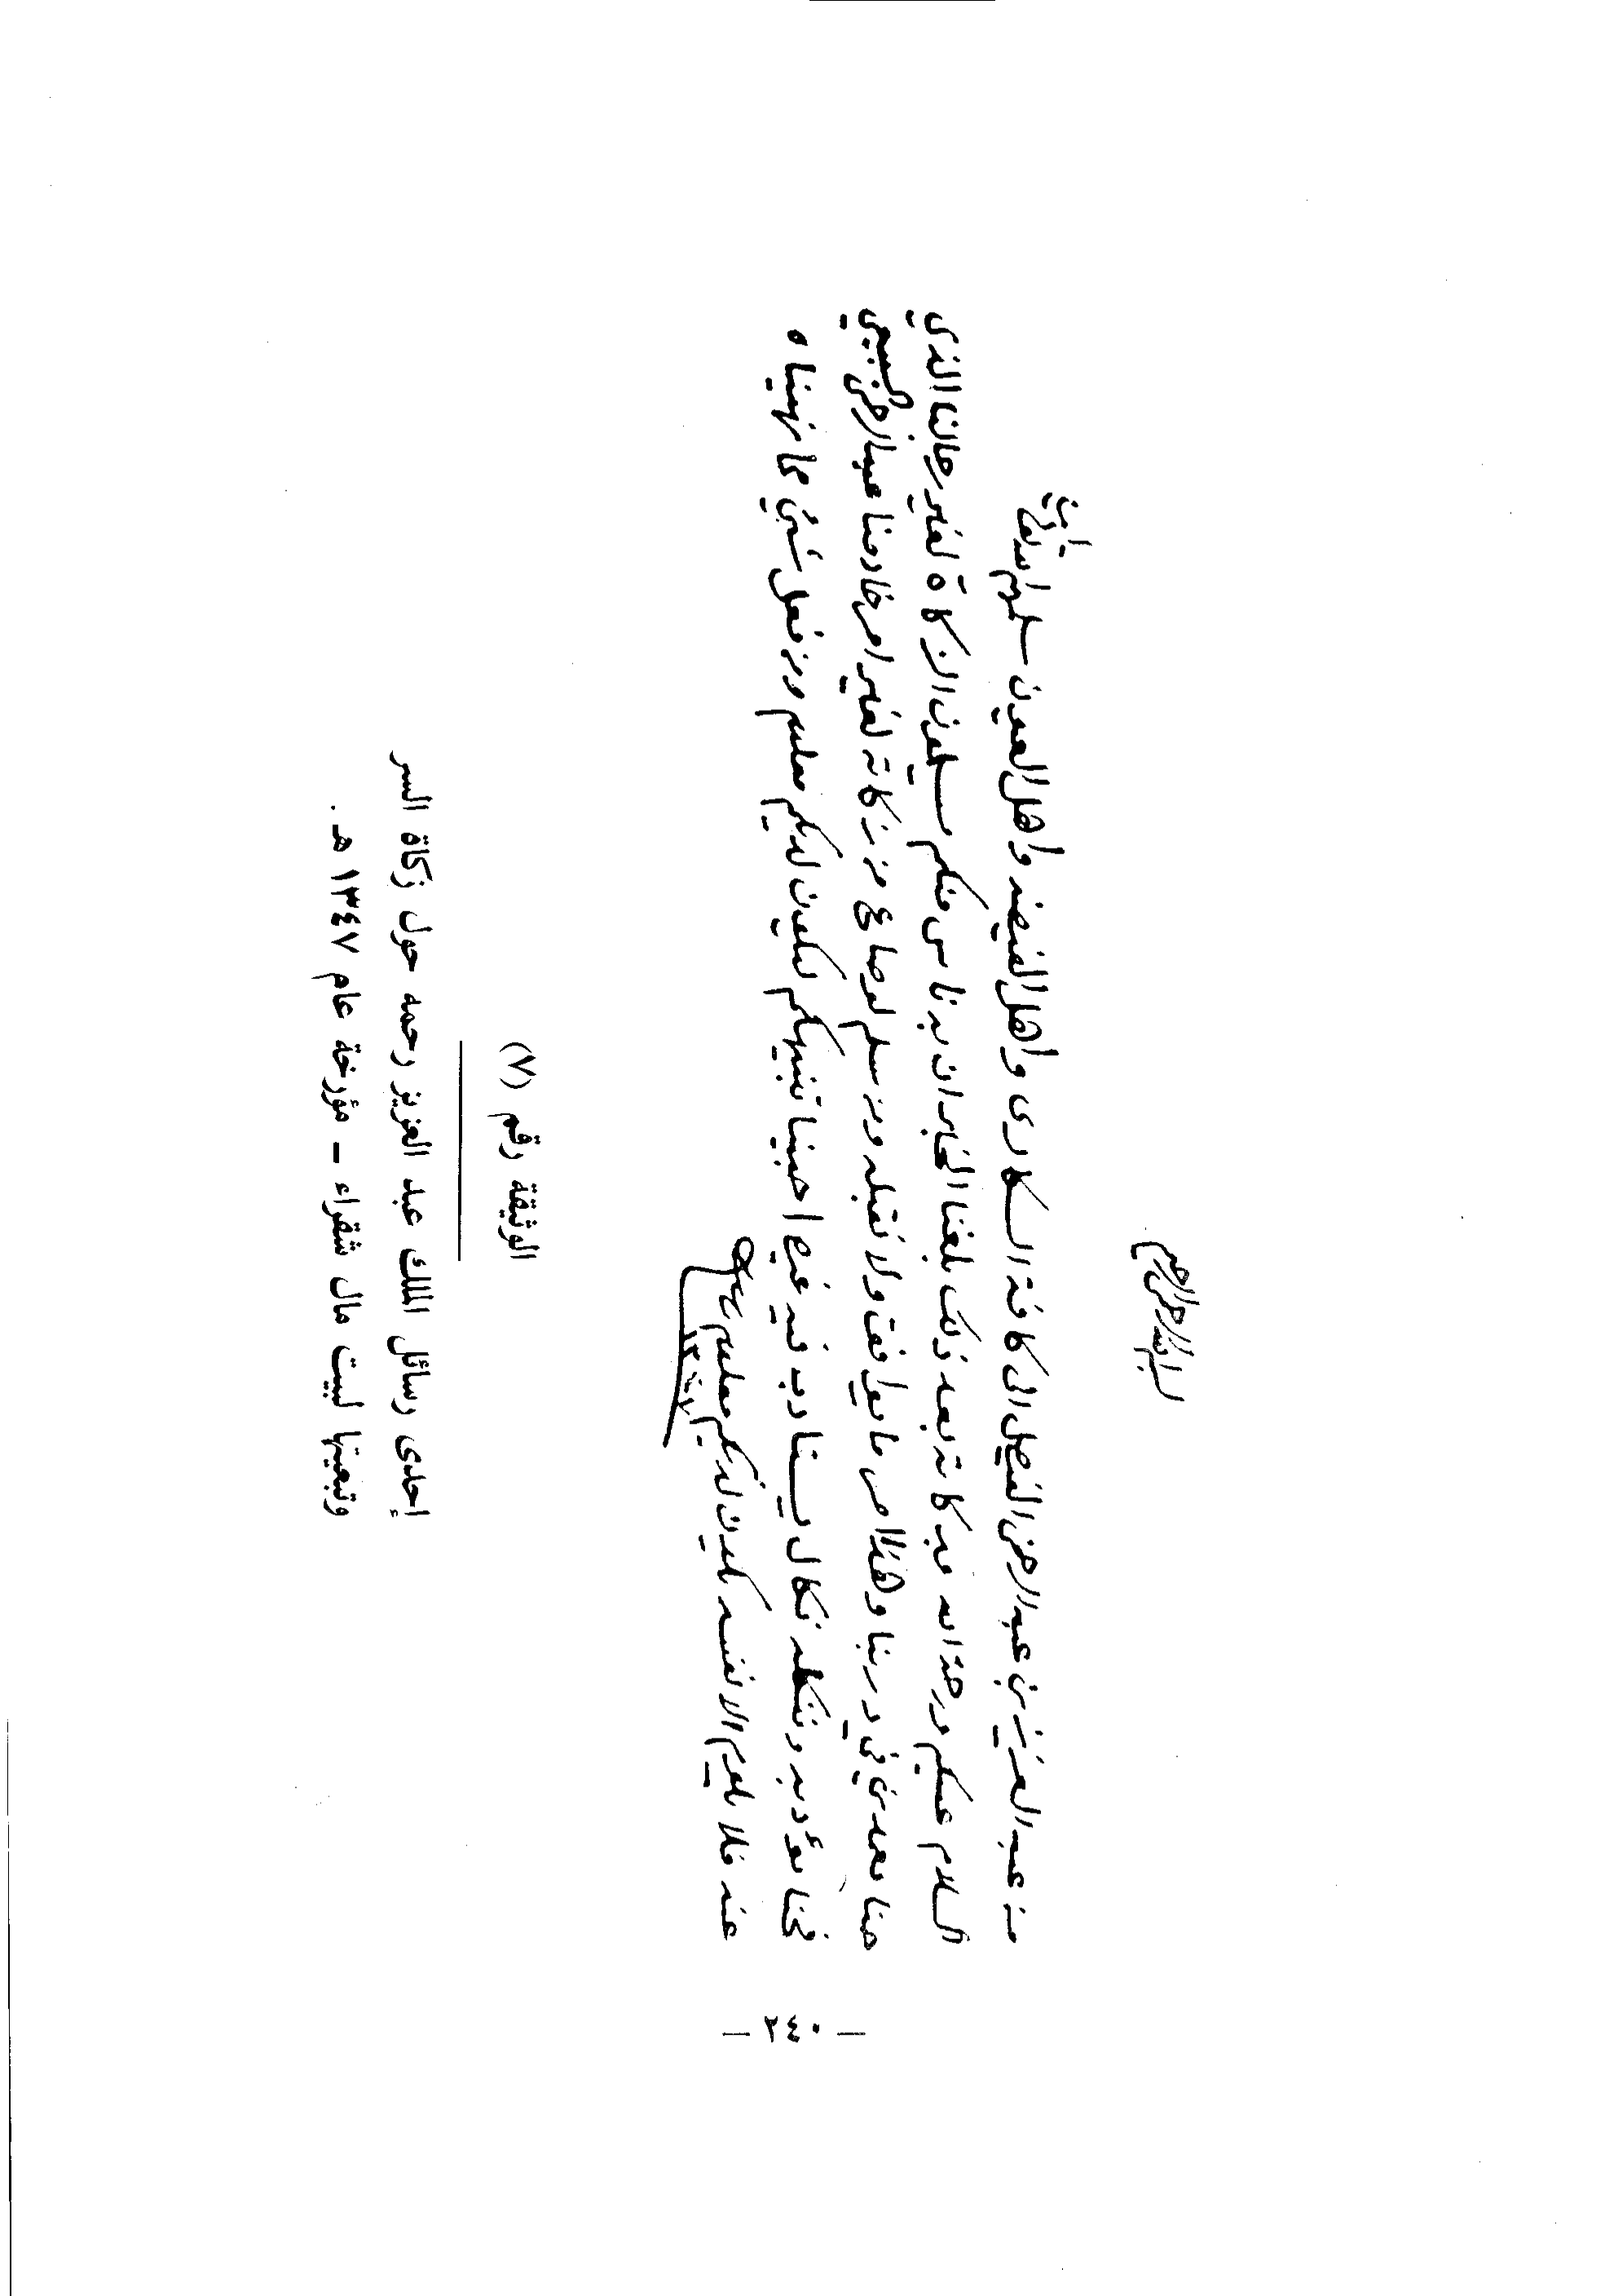 بسم الله الرحمن الرحيم
من عبد العزيز بن عبد الرحمن الفيصل الى كافة السكارى واهل الفيضه واهل العيون سلمهم الله تعالى
امين
السلام عليكم ورحمة الله وبركاته بعد ذلك بلغنا الخبر ان به ناس منكم يسلمون الزكاة لغير رجالنا الذي
حنا نعمدهم في ديرنا وهذا امر ما يوافق ولا نقبله ومن سلم له صاع من زكاته لغير امر خادمنا عبد الرحمن السبيعي
فحنا نؤدبه وننكله نكال يتأدب فيه غيره احببنا تنبيهكم ليكون لديكم معلوم ومن فعل شي مما نهيناه
عنه فلا يلوم الا نفسه يكون لديكم معلوم
الوثيقة رقم (٧)
إحدى رسائل الملك عبد العزيز رحمه حول زكاة السر
وتبعيتها لبيت مال شقراء ـ مؤرخة عام ١٣٤٧ هـ .
— ٢٤٠ —